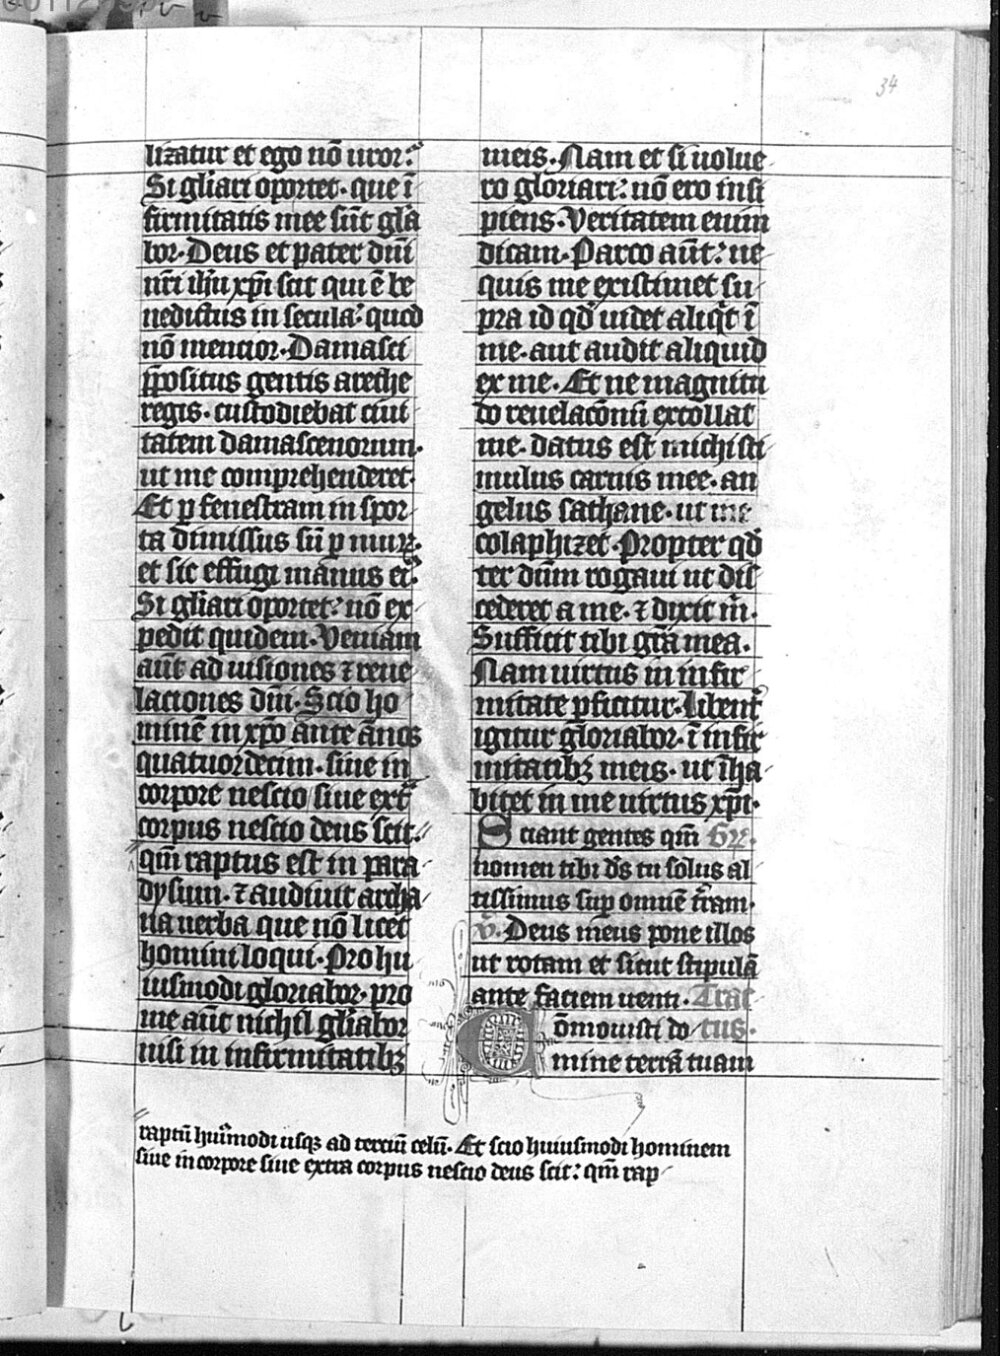 34
lizatur et ego nō uror:
Si gl̄iari oportet · que ī
firmitatis mee sūt gl̄a
bor · Deus et pater dn̄i
nr̄i ih̄u xp̄i scit qui ē be
nedictus in secula: quod
nō mencior · Damasci
p̄positus gentis arethe
regis · custodiebat ciui
tatem damascenorum ·
ut me comprehenderet ·
Et ꝑ fenestram in spor
ta dimissus sū ꝑ murꝝ ·
et sic effugi manus eiꝰ
Si gl̄iari oportet: nō ex
pedit quidem · Veniam
aūt ad uisiones ⁊ reue
laciones dn̄i · Scio ho
minē in xp̄o ante annos
quatuordecim · siue in
corpore nescio siue ext̄
corpus nescio deus scit:
qm̄ raptus est in para
dysum · ⁊ audiuit archa
na uerba que nō licet
homini loqui · Pro hu
iusmodi gloriabor · pro
me aūt nichil gl̄iabor
nisi in infirmitatibꝫ
meis · Nam et si uolue
ro gloriari: nō ero insi
piens · Veritatem enim
dicam · Parco aūt: ne
quis me existimet su
pra id qd̄ uidet aliq̄t ī
me · aut audit aliquid
ex me · Et ne magnitu
do reuelacōnū extollat
me · datus est michi sti
mulus carnis mee · an
gelus sathane · ut me
colaphizet · Propter qd̄
ter dn̄m rogaui ut dis
cederet a me · ⁊ dixit m̄ ·
Sufficit tibi gr̄a mea ·
Nam uirtus in infir
mitate ꝑficitur · Libent̄
igitur gloriabor · ī infir
mitatibꝫ meis · ut īha
bitet in me uirtus xp̄i ·
Sciant gentes qm̄ Gr̄ ·
nomen tibi ds̄ tu solus al
tissimus suꝑ omnē t̄ram ·
v̄ · Deus meus pone illos
ut rotam et sicut stipulā
ante faciem uenti · Trac
Cōmouisti do tus ·
mine terrā tuam
raptū huiꝰmodi usqꝫ ad terciū celū · Et scio huiusmodi hominem
siue in corpore siue extra corpus nescio deus scit: qm̄ rap